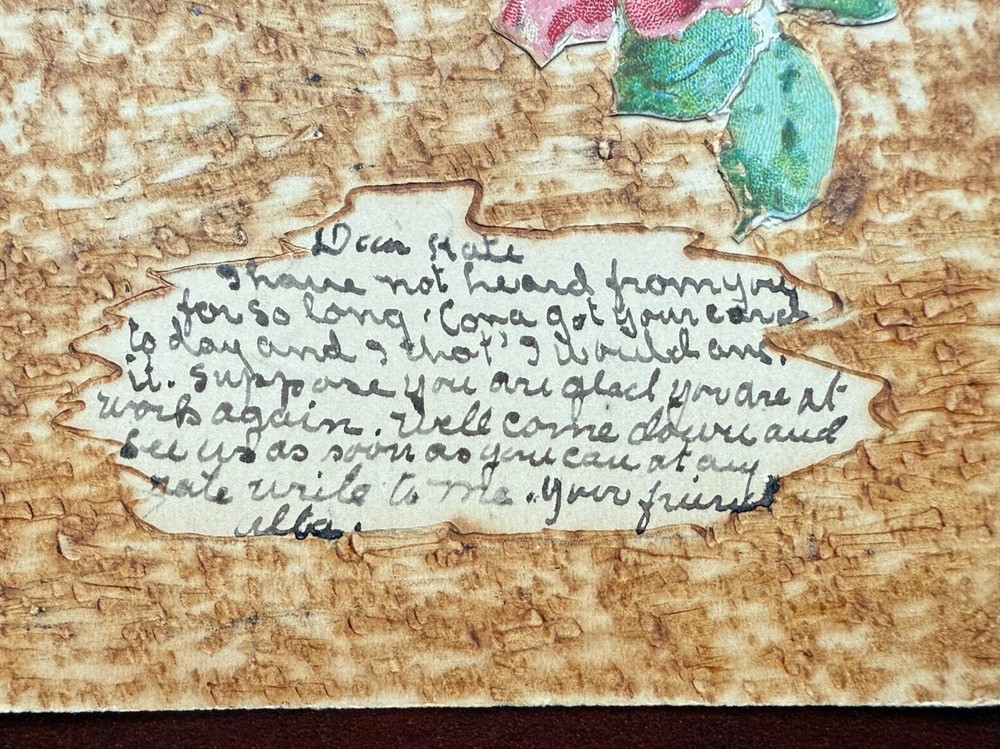 Dear Kate
I have not heard from you
for so long. Cora got your card
to day and I thot I would ans.
it. Suppose you are glad you are at
work again. Well come down and
see us as soon as you can at any
rate write to me. Your friend
Alta.